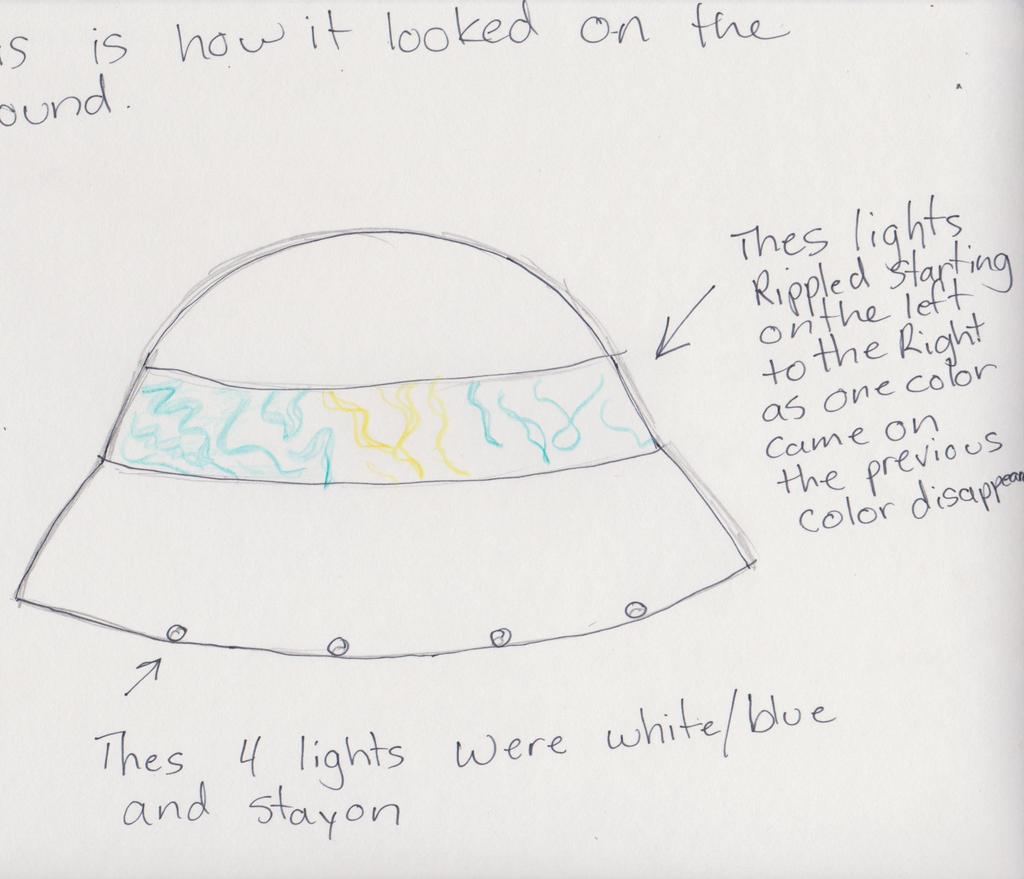 is is how it looked on the
ound.
Thes lights
Rippled starting
on the left
to the Right
as one color
came on
the previous
color disappear
Thes 4 lights were white/blue
and stayon